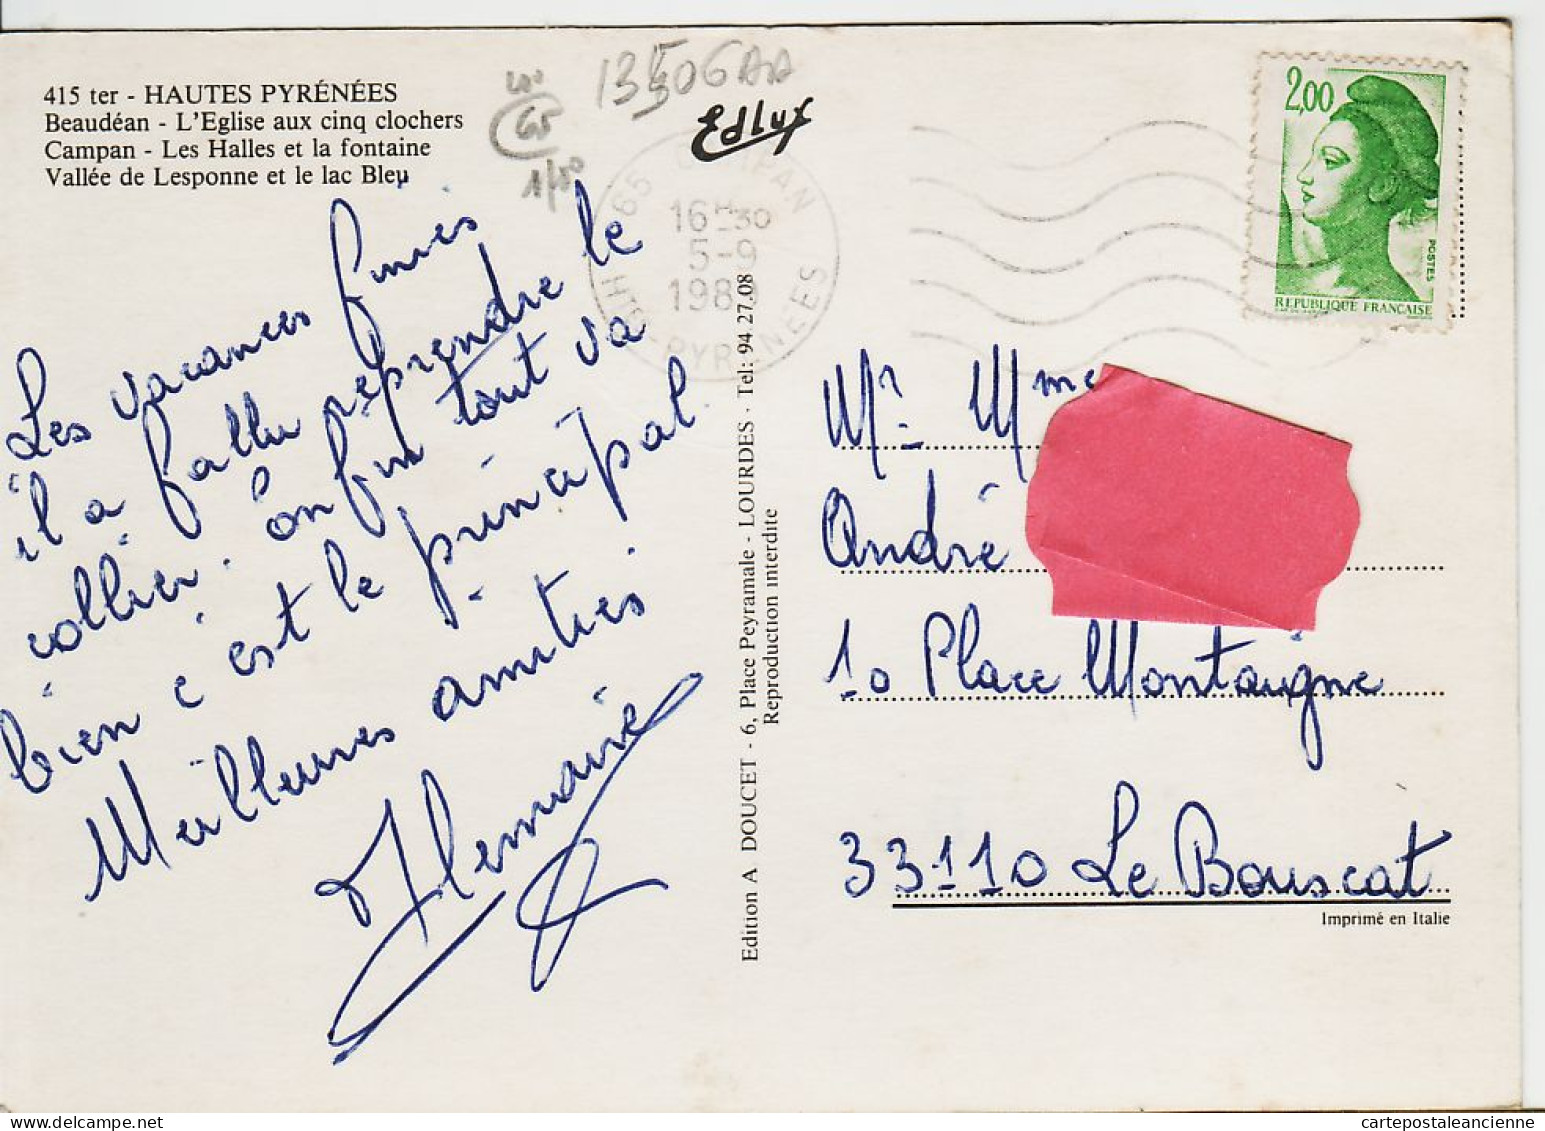 415 ter - HAUTES PYRÉNÉES
Beaudéan - L'Eglise aux cinq clochers
Campan - Les Halles et la fontaine
Vallée de Lesponne et le lac Bleu
13506AA
65
1/50
Edlux
65 CAMPAN
16H30
5-9
1989
HTES-PYRENEES
2,00
POSTES
REPUBLIQUE FRANÇAISE
Les vacances finies
il a fallu reprendre le
collier. Enfin tout va
bien c'est le principal.
Meilleures amitiés
Edition A DOUCET - 6, Place Peyramale - LOURDES - Tel: 94 27.08
Reproduction interdite
Mr Mme
André
10 Place Montaigne
33110 Le Bouscat
Imprimé en Italie
cartepostaleancienne.com